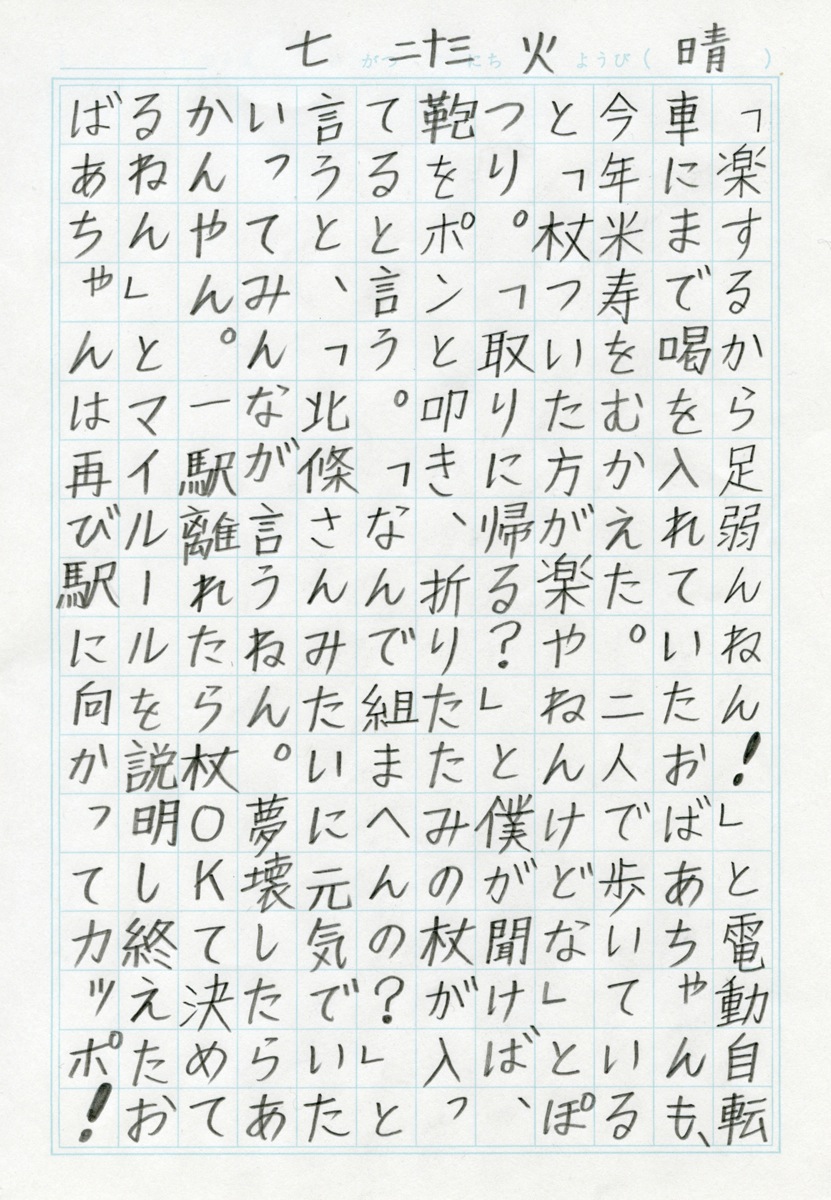 七がつ二十三にち火ようび(晴)
「楽するから足弱んねん!」と電動自転
車にまで喝を入れていたおばあちゃんも、
今年米寿をむかえた。二人で歩いている
と「杖ついた方が楽やねんけどな」とぽ
つり。「取りに帰る?」と僕が聞けば、
鞄をポンと叩き、折りたたみの杖が入っ
てると言う。「なんで組まへんの?」と
言うと、「北條さんみたいに元気でいた
いってみんなが言うねん。夢壊したらあ
かんやん。一駅離れたら杖OKて決めて
るねん」とマイルールを説明し終えたお
ばあちゃんは再び駅に向かってカッポ!